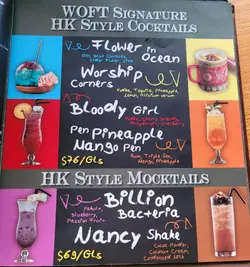 WOFT SIGNATURE
HK STYLE COCKTAILS
Flower in
Ocean
Gin, Blue Curacao,
Worship
Corners
Vodka, Tequila, Pineapple,
Bloody Girl
Pen Pineapple
Mango Pen
$76/Gls
Rum, Triple Sec,
Mango, Pineapple
HK STYLE MOCKTAILS
Billion
Bacteria
Blueberry,
Passion Fruit
Nancy Shake
$69/Gls
Coconut Cream,
Condensed Milk